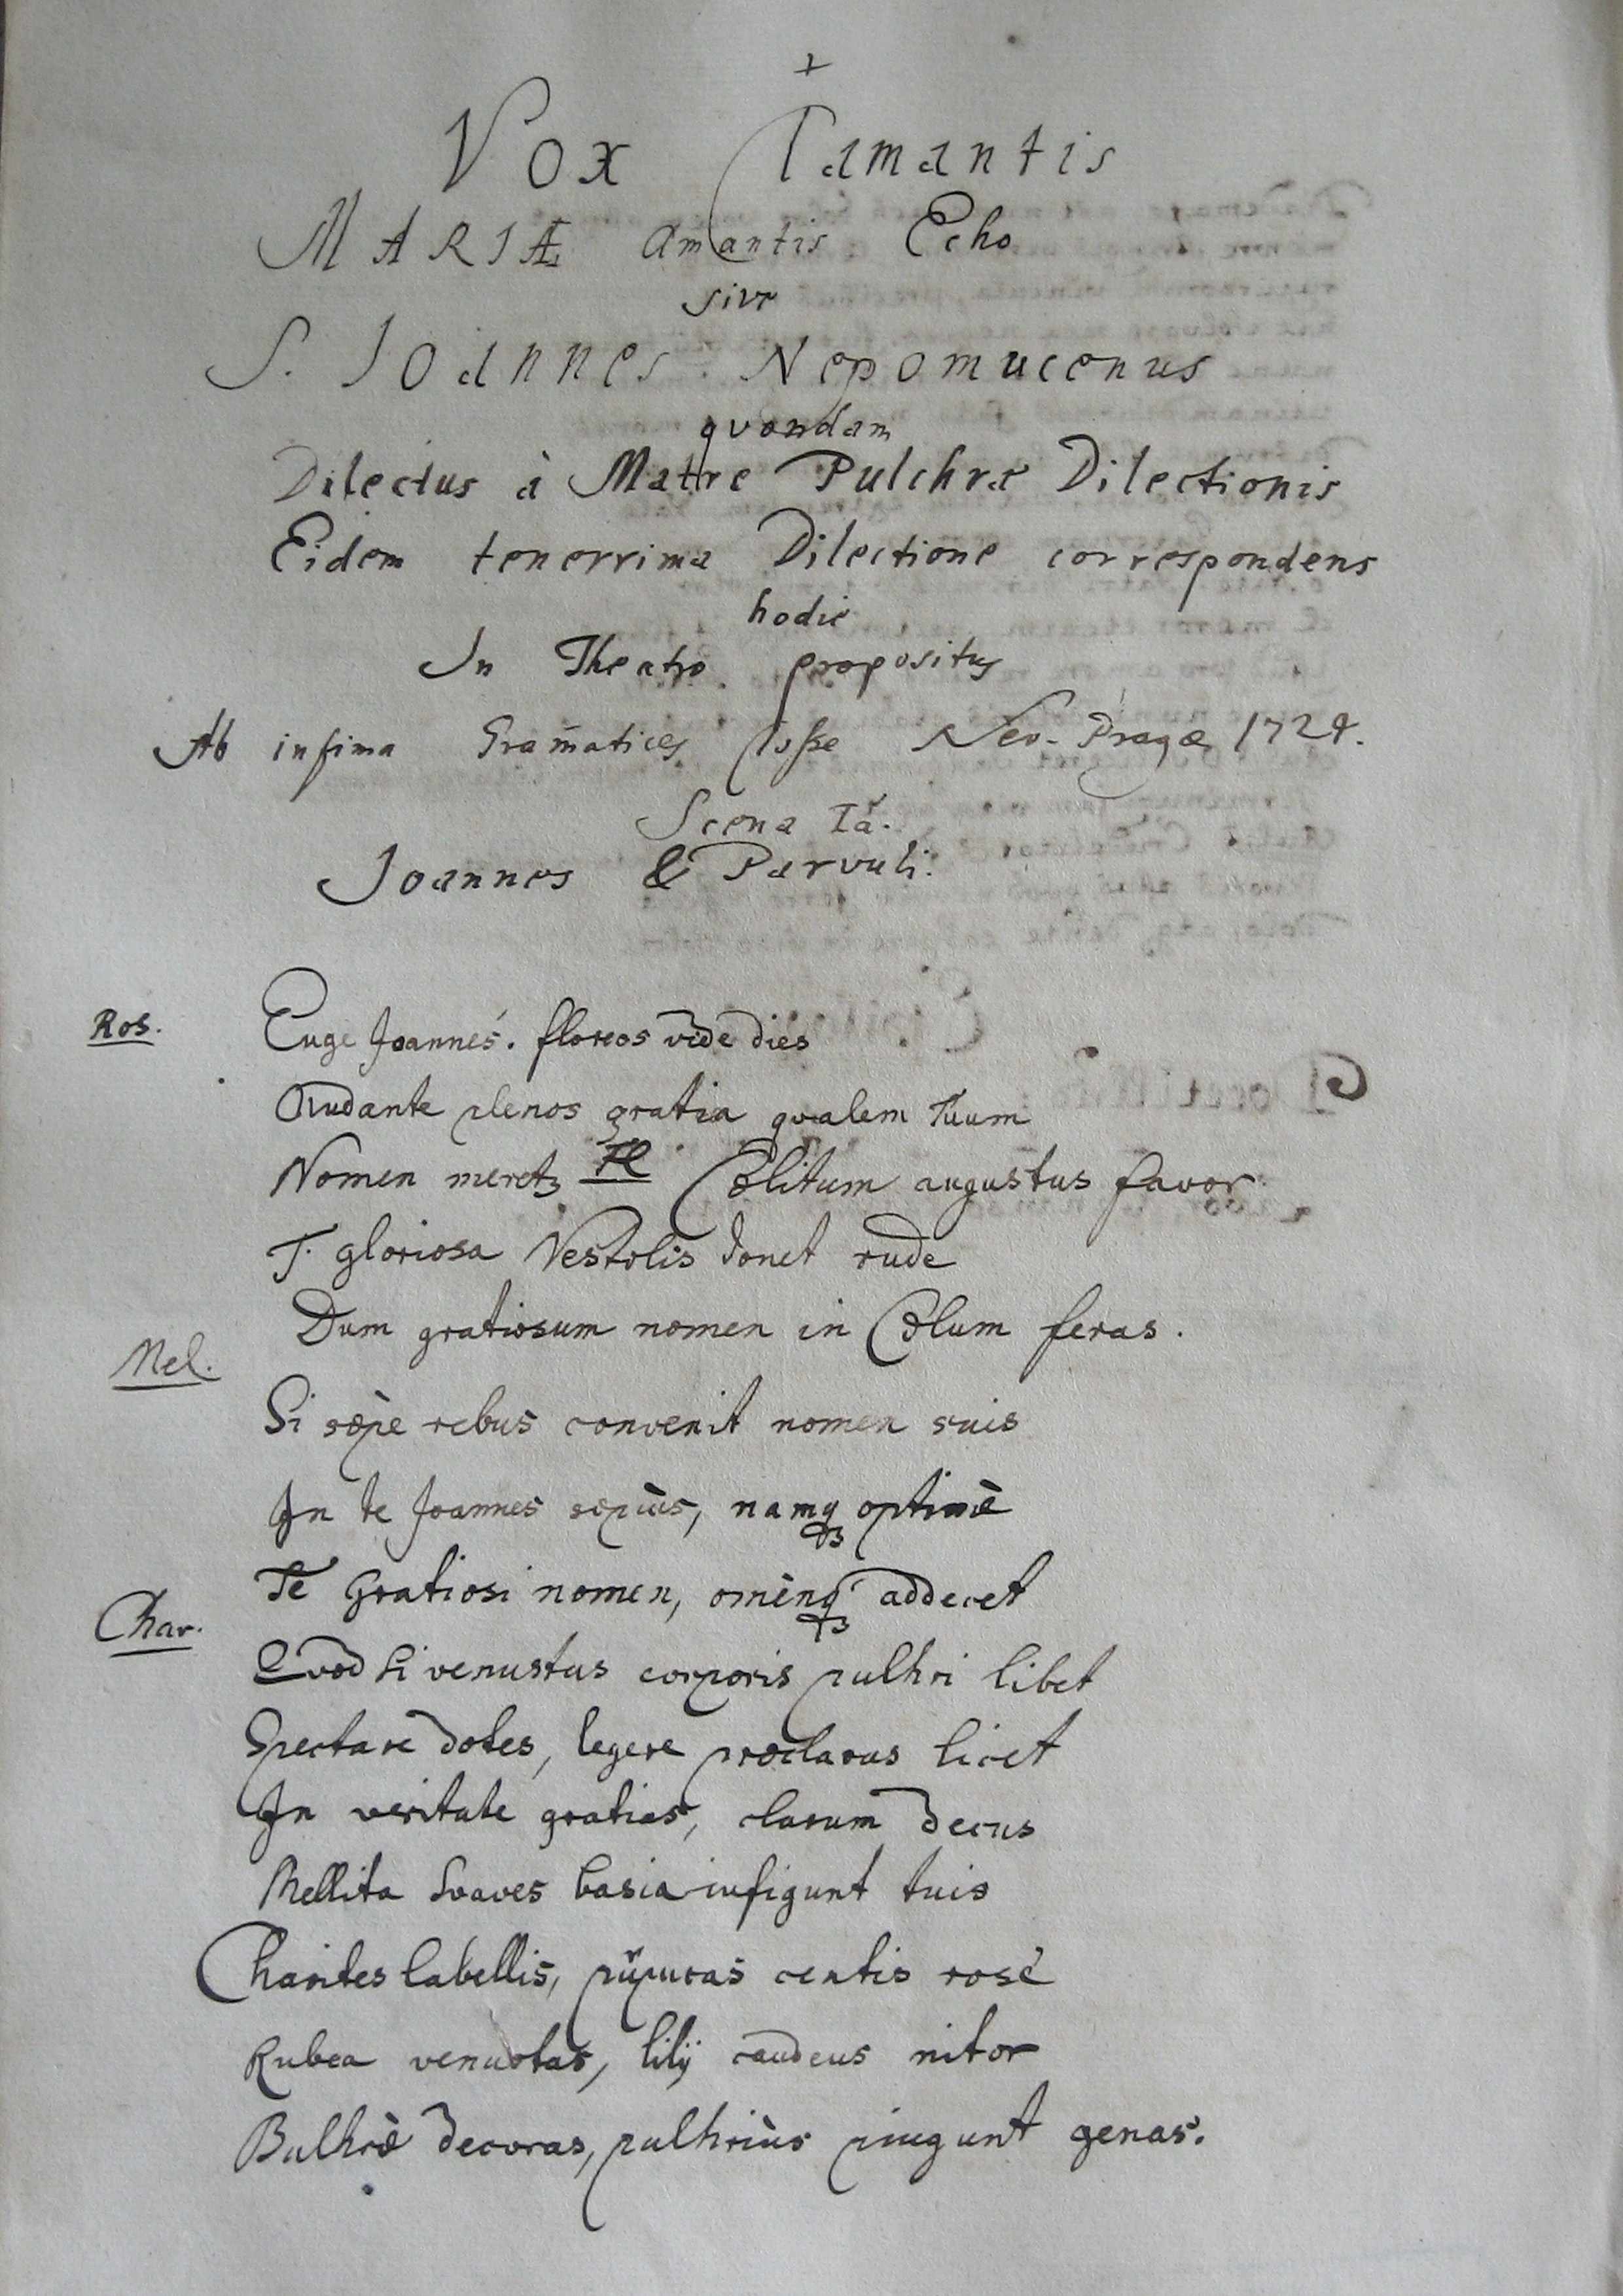 +
Vox Clamantis
MARIÆ Amantis Echo
sive
S. Ioannes Nepomucenus
quondam
Dilectus à Matre Pulchræ Dilectionis
Eidem tenerrima Dilectione correspondens
hodie
In Theatro propositus
Ab infima Gram̄atices Classe Neo-Pragæ 1724.
Scena Iă.
Joannes & Parvuli.
Ros. Euge Joannes. floreos vide dies
Oudante plenos gratia qvalem Tuum
Nomen meretꝫ Te Cœlitum augustus favor
T. gloriosa donet rude
Dum gratiosum nomen in Cœlum feras.
Mel.
Si sœpe rebus convenit nomen suis
In te Joannes sœpius, namqꝫ optimè
Te Gratiosi nomen, omenqꝫ addecet
Char.
Qvod si venustus corporis pulhri libet
Spectare dotes, legere prœclaras licet
In veritate gratias, clarum decus
Mellita Svaves basia infigunt tuis
Charites labellis, centis rosĕ
Rubea venustas, lilij candens nitor
Bulhrè decoras, pulhriùs pingunt genas.